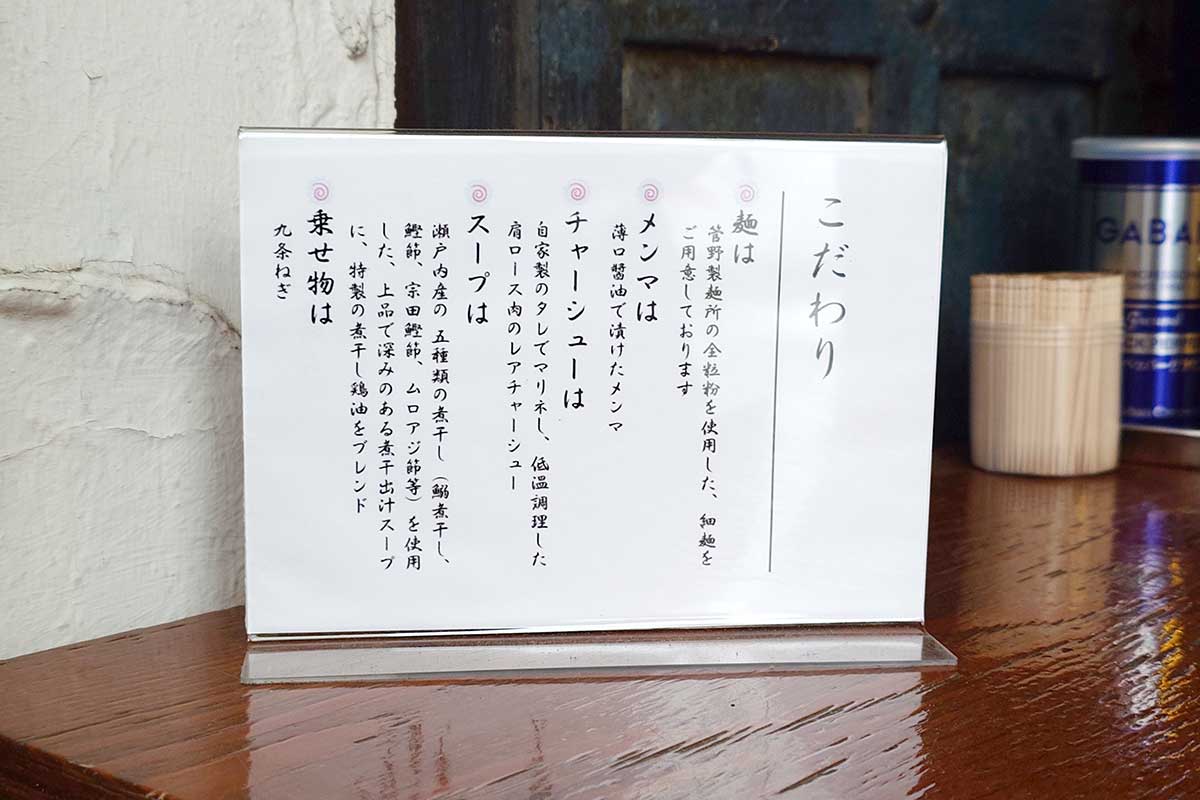 こだわり
麺は
菅野製麺所の全粒粉を使用した、細麺を
ご用意しております
メンマは
薄口醤油で漬けたメンマ
チャーシューは
自家製のタレでマリネし、低温調理した
肩ロース肉のレアチャーシュー
スープは
瀬戸内産の五種類の煮干し（鰯煮干し、
鰹節、宗田鰹節、ムロアジ節等）を使用
した、上品で深みのある煮干出汁スープ
に、特製の煮干し鶏油をブレンド
乗せ物は
九条ねぎ
GABA